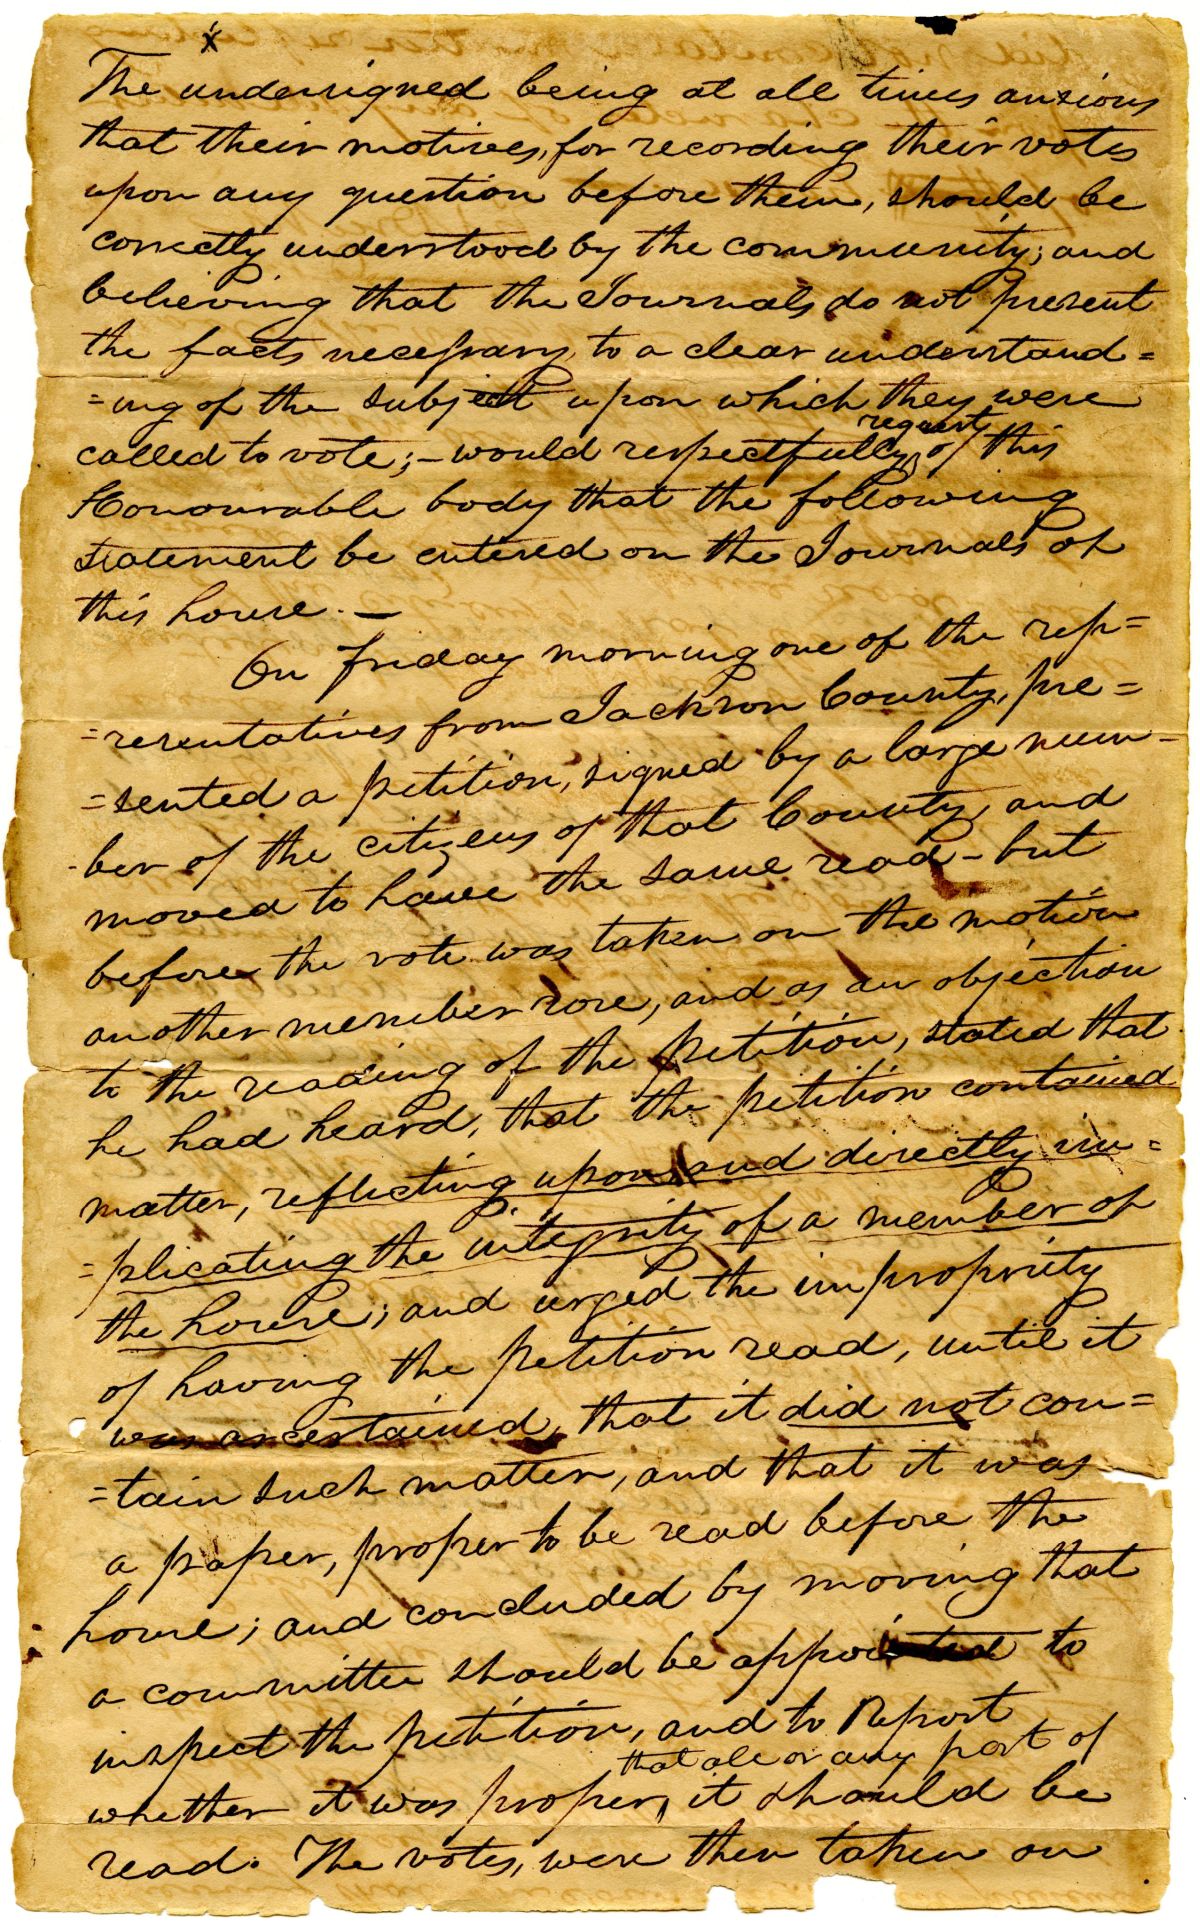 x
The undersigned being at all times anxious
that their motives, for recording their votes
upon any question before them, should be
correctly understood by the community; and
believing that the Journals do not present
the facts necessary to a clear understand=
=ing of the subject upon which they were
request
called to vote; – would respectfully of this
Honourable body that the following
statement be entered on the Journals of
this house. –
On Friday morning one of the rep=
=resentatives from Jackson County, pre=
=sented a petition, signed by a large num-
-ber of the citizens of that County, and
moved to have the same read – but
before the vote was taken on the motion
another member rose, and as an objection
to the reading of the petition, stated that
he had heard, that the petition contained
matter, reflecting upon and directly im=
=plicating the integrity of a member of
the house; and urged the impropriety
of having the petition read, until it
was ascertained, that it did not con=
=tain such matter, and that it was
a paper, proper to be read before the
house; and concluded by moving that
a committee should be appointed to
inspect the petition, and to Report
that all or any part of
whether it was proper, it should be
read. The votes, were then taken on